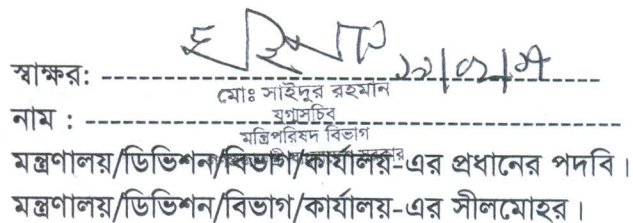 স্বাক্ষর:
মোঃ সাইদুর রহমান
নাম :
যুগ্মসচিব
মন্ত্রিপরিষদ বিভাগ
মন্ত্রণালয়/ডিভিশন/বিভাগ/কার্যালয়-এর প্রধানের পদবি।
মন্ত্রণালয়/ডিভিশন/বিভাগ/কার্যালয়-এর সীলমোহর।